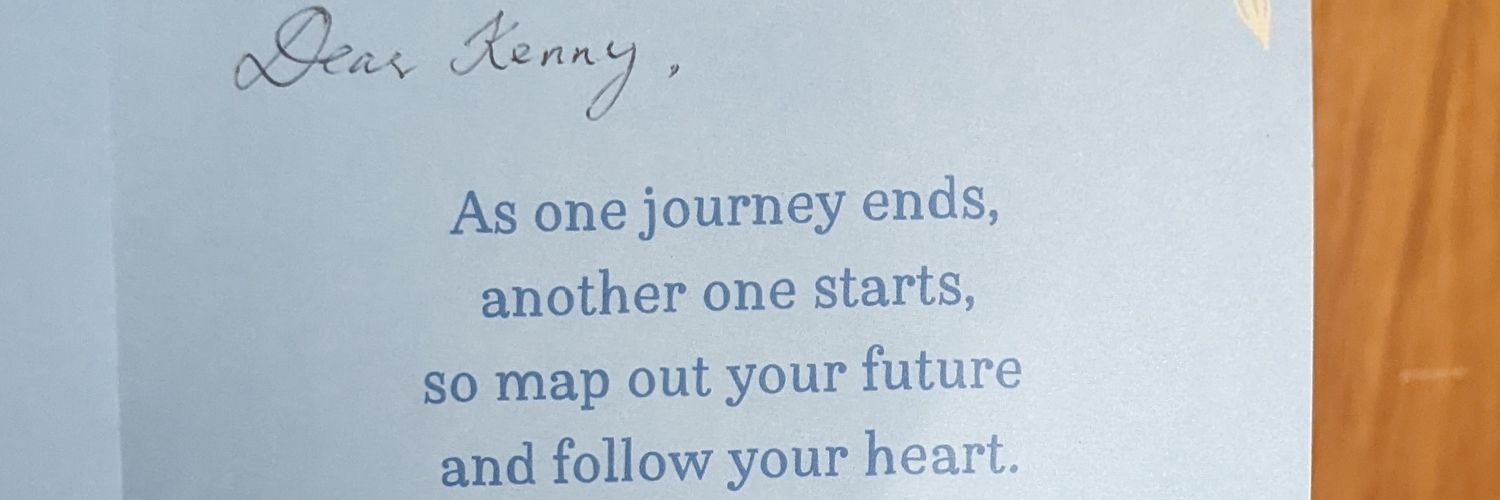 Dear Kenny,
As one journey ends,
another one starts,
so map out your future
and follow your heart.